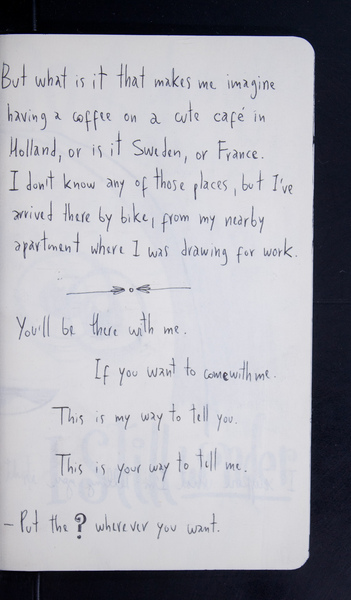 But what is it that makes me imagine
having a coffee on a cute café in
Holland, or is it Sweden, or France.
I don't know any of those places, but I've
arrived there by bike, from my nearby
apartment where I was drawing for work.
You'll be there with me.
If you want to come with me.
This is my way to tell you.
This is your way to tell me.
- Put the ? wherever you want.